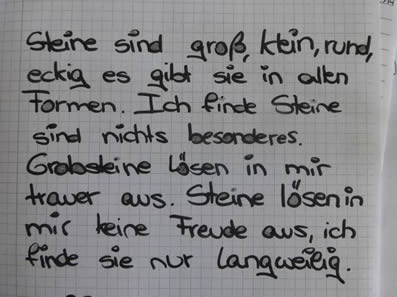 Steine sind groß, klein, rund,
eckig es gibt sie in allen
Formen. Ich finde Steine
sind nichts besonderes.
Grabsteine lösen in mir
trauer aus. Steine lösen in
mir keine Freude aus, ich
finde sie nur langweilig.